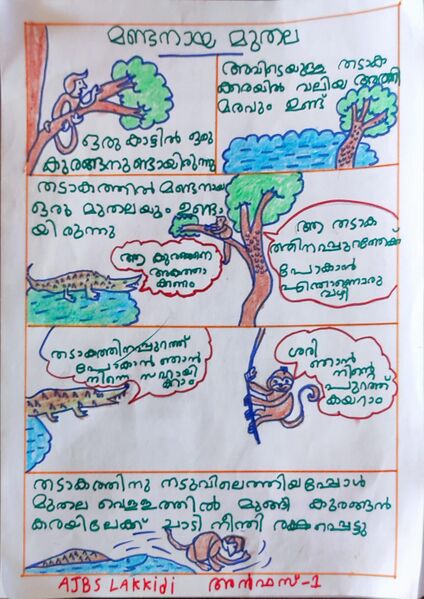 മണ്ടനായ മുതല
ഒരു കാട്ടിൽ ഒരു
കുരങ്ങനുണ്ടായിരുന്നു
അവിടെയുള്ള തടാക
ക്കരയിൽ വലിയ അത്തി
മരവും ഉണ്ട്
തടാകത്തിൽ മണ്ടനായ
ഒരു മുതലയും ഉണ്ടാ
യിരുന്നു
ആ കുരങ്ങനെ
അകത്താ
ക്കണം
ആ തടാക
ത്തിനപ്പുറത്തേക്ക്
പോകാൻ
എന്താണൊരു
വഴി
തടാകത്തിനപ്പുറത്ത്
പോകാൻ ഞാൻ
നിന്നെ സഹായി
ക്കാം
ശരി
ഞാൻ
നിന്റെ
പുറത്ത്
കയറാം
തടാകത്തിനു നടുവിലെത്തിയപ്പോൾ
മുതല വെള്ളത്തിൽ മുങ്ങി കുരങ്ങൻ
കരയിലേക്ക് ചാടി നീന്തി രക്ഷപ്പെട്ടു
AJBS Lakkidi അൻഫസ്-1